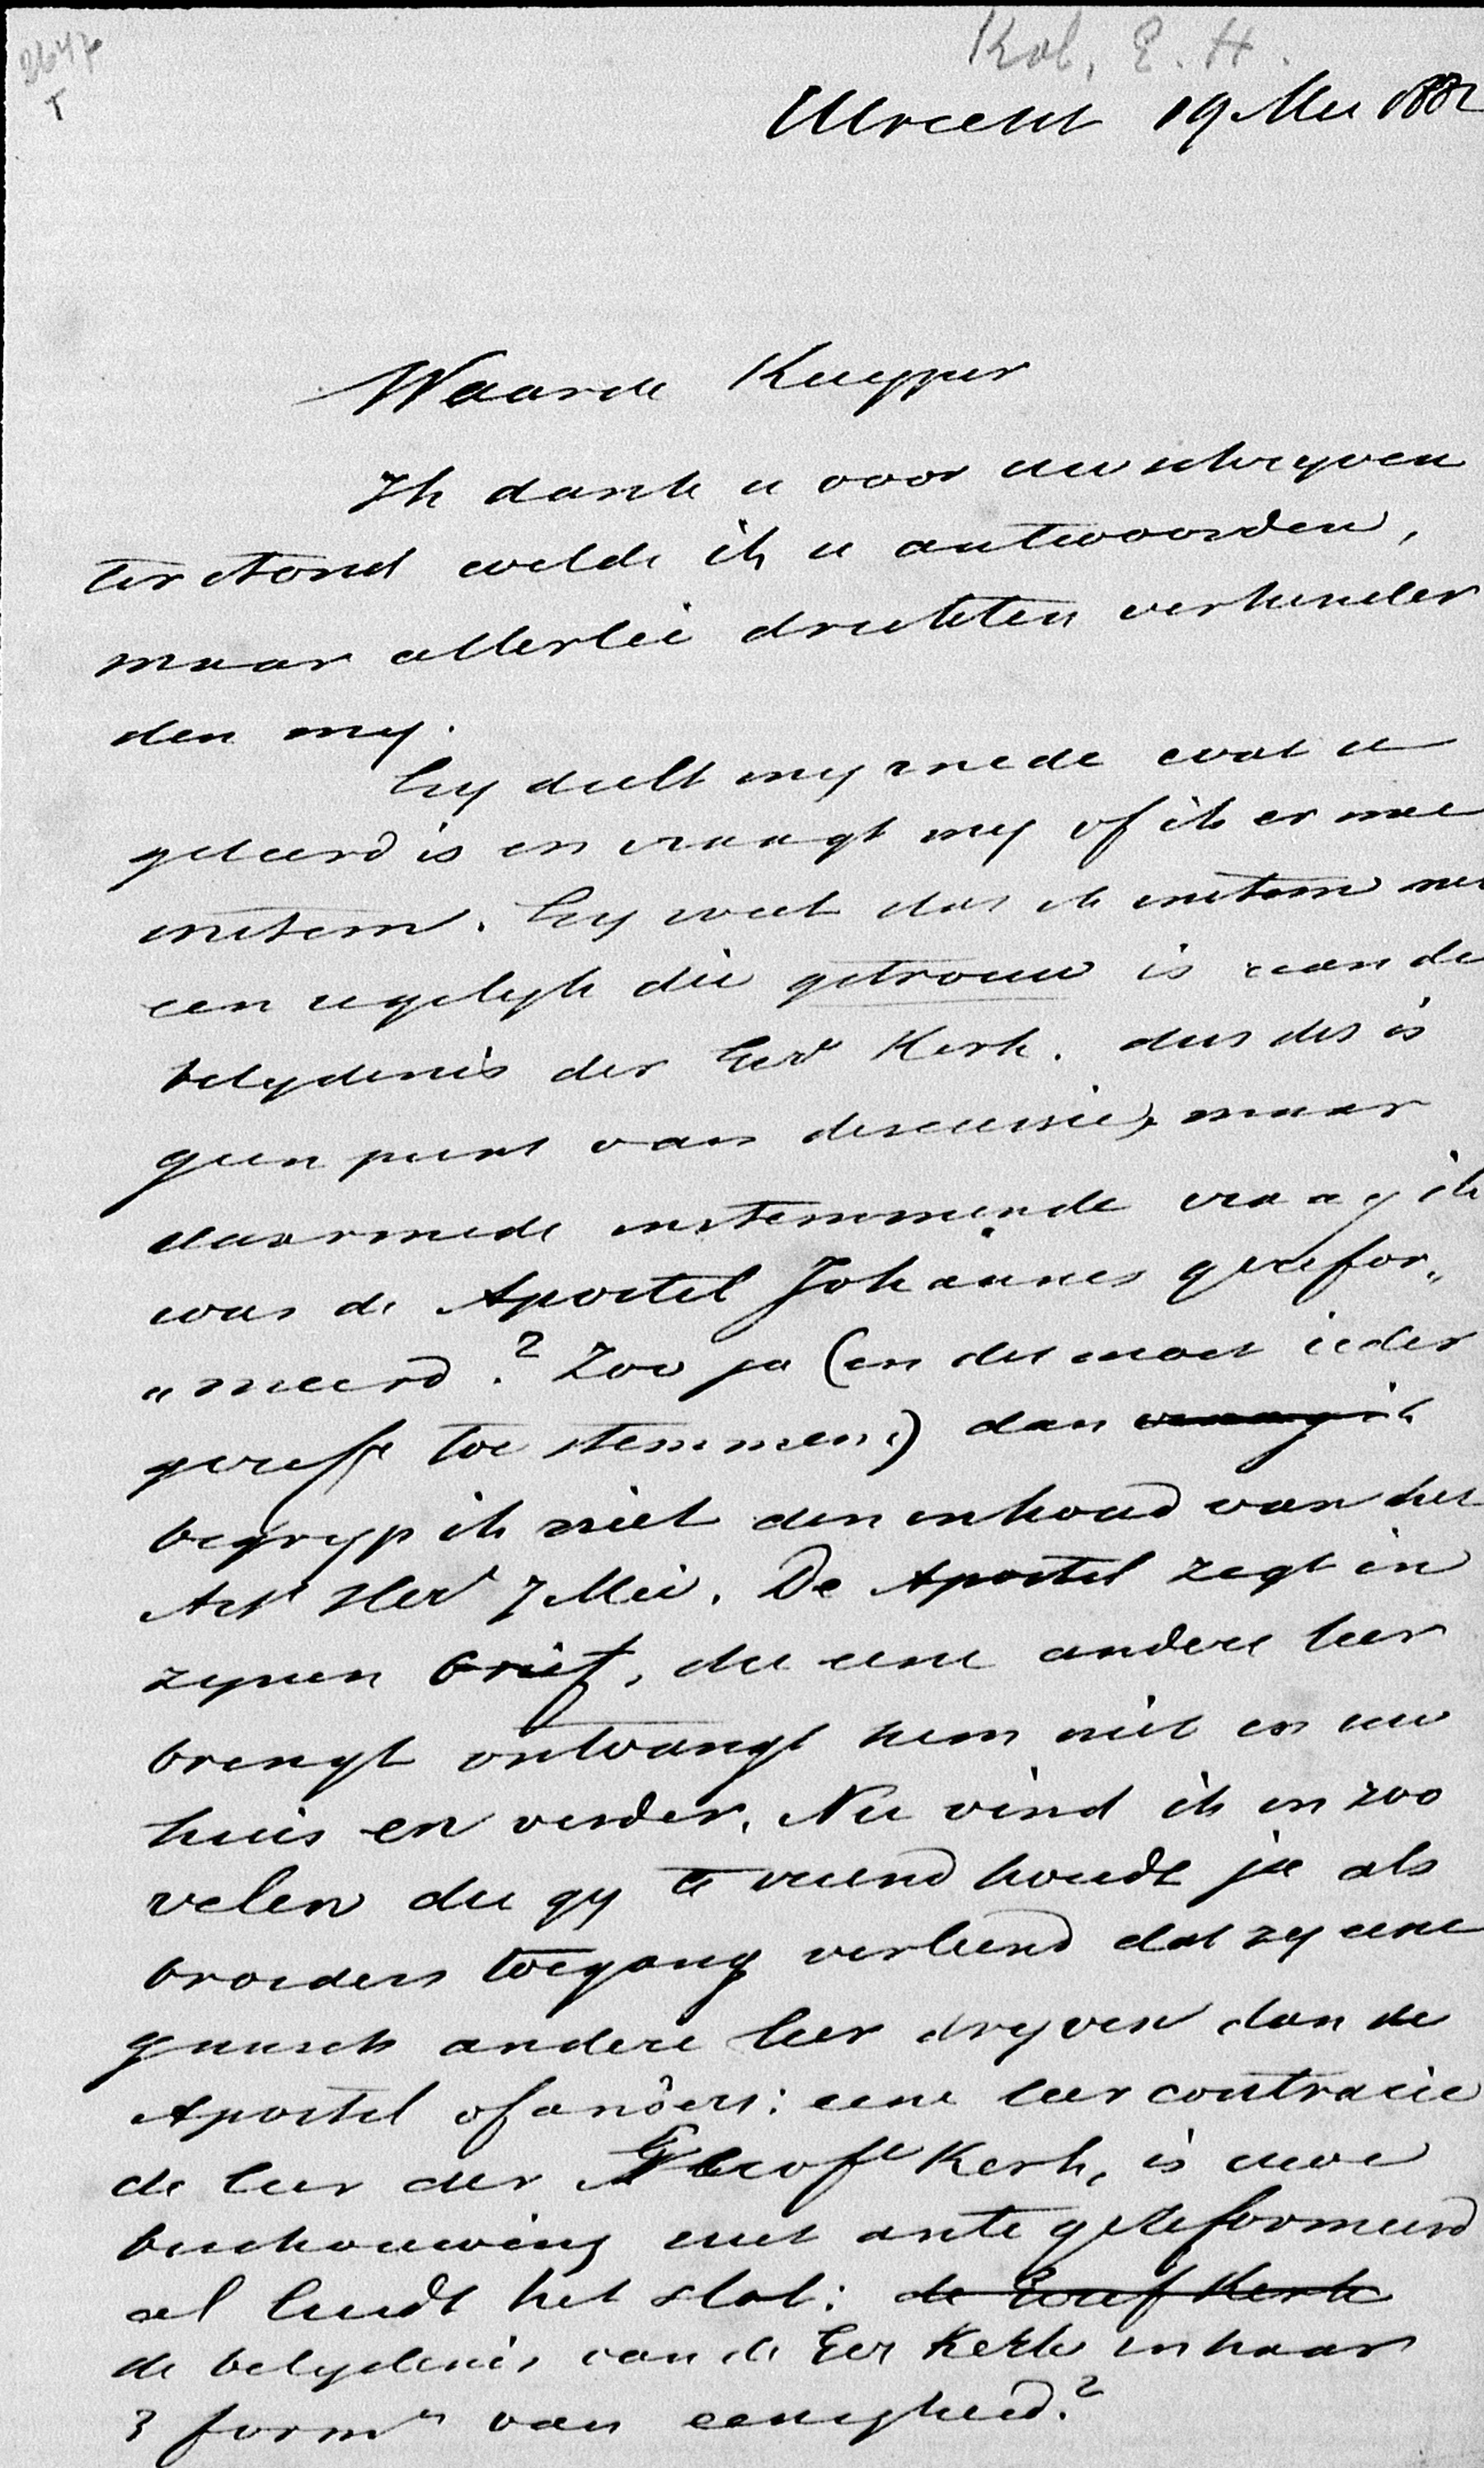 2647
T
Kol, E. H.
Utrecht 19 Mei 1882
Waarde Kuyper
Ik dank u voor uw schryven
terstond wilde ik u antwoorden,
maar allerlei drukten verhinder
den my.
Gy deelt my mede wat u
geleerd is en vraagt my of ik er mee
instem. Gy weet dat ik instem met
een iegelyk die getrouw is aan de
belydenis der Kerk. dus dit is
geen punt van discussie, maar
daarmede instemmende vraag ik
was de Apostel Johannes gerefor„
„meerd? Zoo ja (en dit moet ieder
toe stemmen) dan vraag ik
begryp ik niet den inhoud van het
Art Her 7 Mei. De Apostel zegt in
zynen brief, die eene andere leer
brengt ontvangt hem niet in uw
huis en verder. Nu vind ik in zoo
velen die gy te vriend houdt ja als
broeders toegang verleend dat zy eene
gansch andere leer dryven dan de
Apostel of anders: eene leer contrarie
de leer der Kerk, is uwe
beschouwing niet anti gereformeerd
al luidt het slot: de Kerk
de belydenis van de Ger Kerk in haar
3 form^n van eenigheid?